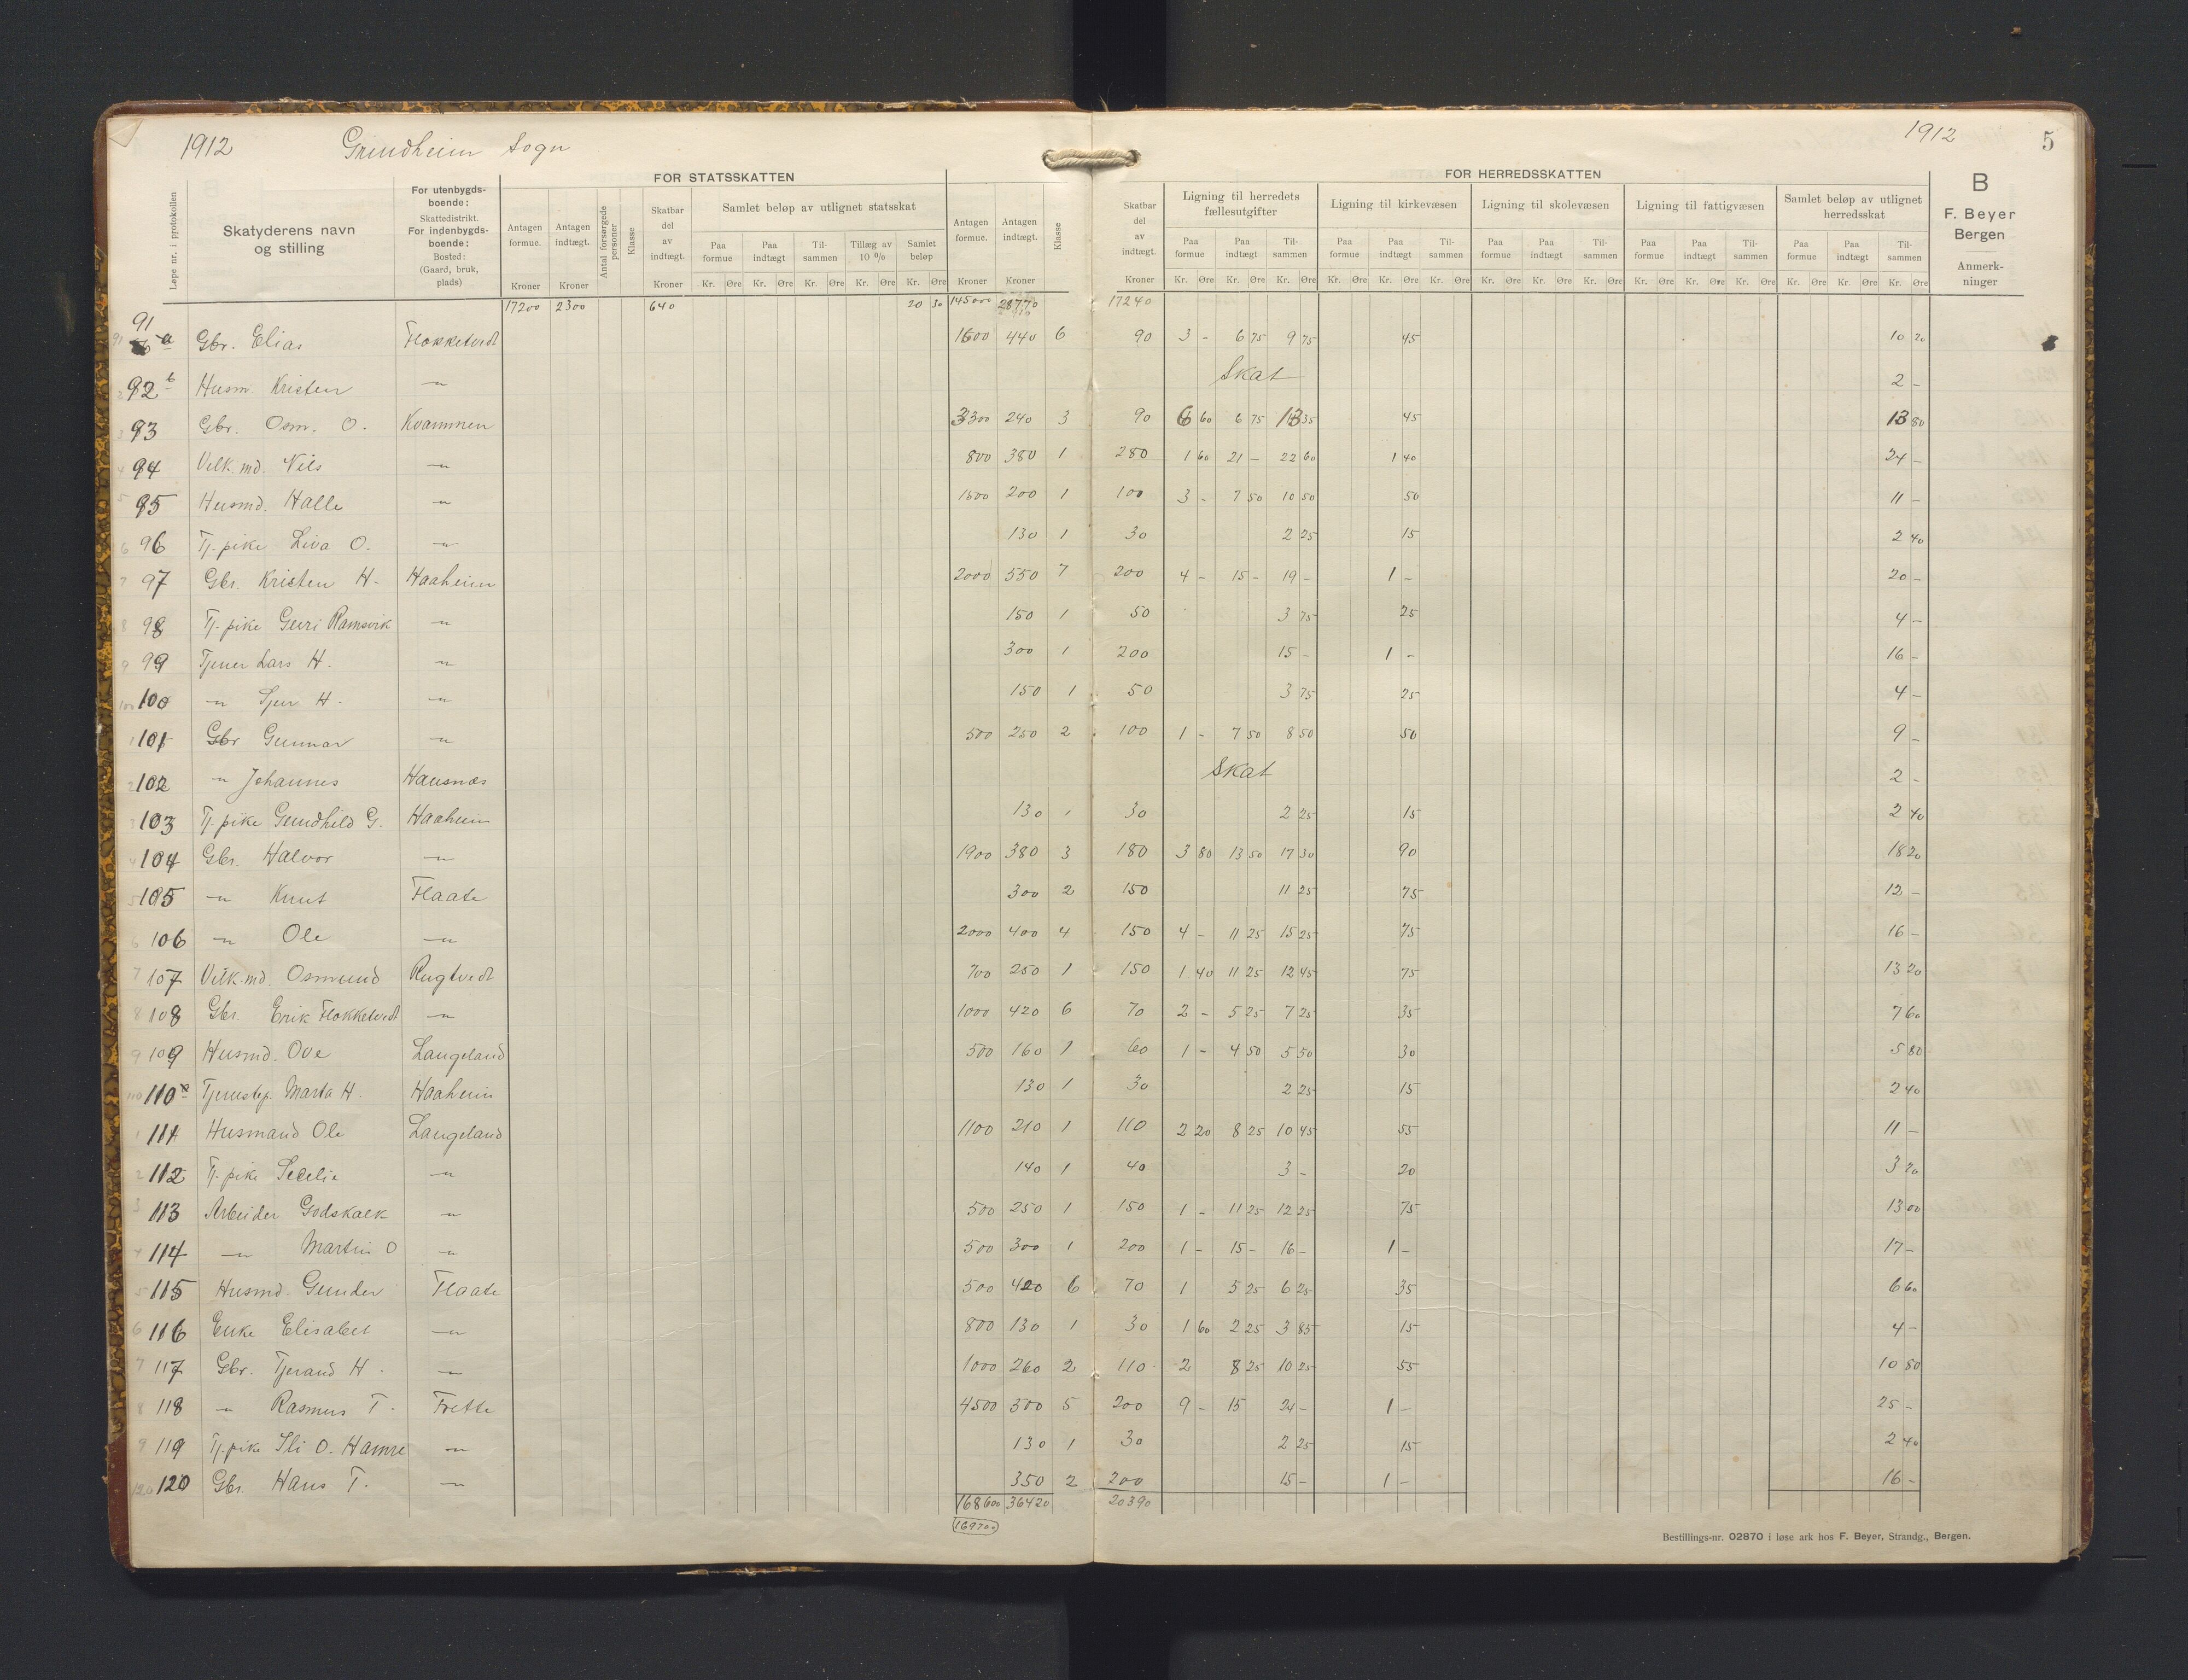 1912 Grindheim Sogn 1912 5
FOR STATSSKATTEN FOR HERREDSSKATTEN
Løpe nr. i protokollen
Skatyderens navn og stilling
For utenbygds-boende: Skattedistrikt. For indenbygds-boende: Bosted: (Gaard, bruk, plads)
Antagen formue. Kroner
Antagen indtægt. Kroner
Antal forsørgede personer
Klasse
Skatbar del av indtægt. Kroner
Samlet beløp av utlignet statsskat
Paa formue Kr. Øre
Paa indtægt Kr. Øre
Til-sammen Kr. Øre
Tillæg av 10 % Kr. Øre
Samlet beløp Kr. Øre
Antagen formue. Kroner
Antagen indtægt. Kroner
Klasse
Skatbar del av indtægt. Kroner
Ligning til herredets fællesutgifter
Paa formue Kr. Øre Paa indtægt Kr. Øre Til-sammen Kr. Øre
Ligning til kirkevæsen
Paa formue Kr. Øre Paa indtægt Kr. Øre Til-sammen Kr. Øre
Ligning til skolevæsen
Paa formue Kr. Øre Paa indtægt Kr. Øre Til-sammen Kr. Øre
Ligning til fattigvæsen
Paa formue Kr. Øre Paa indtægt Kr. Øre Til-sammen Kr. Øre
Samlet beløp av utlignet herredsskat
Paa formue Kr. Øre Paa indtægt Kr. Øre Til-sammen Kr. Øre
B
F. Beyer
Bergen
Anmerk-ninger
17200 2300 640 20 30 145000 28770 17240
91 a Gbr. Elias Flokketvedt 1600 440 6 90 3 - 6 75 9 75 45 10 20
92 b Husm. Kristen -"- Skat 2 -
93 Gbr. Osm. O. Kvammen 3300 240 3 90 6 60 6 75 13 35 45 13 80
94 Velk. md. Nils -"- 800 380 1 280 1 60 21 - 22 60 1 40 24 -
95 Husmd. Halle -"- 1500 200 1 100 3 - 7 50 10 50 50 11 -
96 Tj. pike Liva O. -"- 130 1 30 2 25 15 2 40
97 Gbr. Kristen H. Haaheim 2000 550 7 200 4 - 15 - 19 - 1 - 20 -
98 Tj. pike Guri Ramsvik -"- 150 1 50 3 75 25 4 -
99 Tjener Lars H. -"- 300 1 200 15 - 1 - 16 -
100 -"- Sjur H. -"- 150 1 50 3 75 25 4 -
101 Gbr Gunnar -"- 500 250 2 100 1 - 7 50 8 50 50 9 -
102 -"- Johannes Hausnæs Skat 2 -
103 Tj. pike Gundhild G. Haaheim 130 1 30 2 25 15 2 40
104 Gbr. Halvor -"- 1900 380 3 180 3 80 13 50 17 30 90 18 20
105 -"- Knut Flaate 300 2 150 11 25 75 12 -
106 -"- Ole -"- 2000 400 4 150 4 - 11 25 15 25 75 16 -
107 Velk. md. Osmund Rugtvedt 700 250 1 150 1 40 11 25 12 45 75 13 20
108 Gbr. Erik Flokketvedt -"- 1000 420 6 70 2 - 5 25 7 25 35 7 60
109 Husmd. Ove Langeland 500 160 1 60 1 - 4 50 5 50 30 5 80
110 Tjenestep. Marta H. Haaheim 130 1 30 2 25 15 2 40
111 Husmand Ole Langeland 1100 210 1 110 2 20 8 25 10 45 55 11 -
112 Tj. pike Secelie -"- 140 1 40 3 - 20 3 20
113 Arbeider Godskalk -"- 500 250 1 150 1 - 11 25 12 25 75 13 00
114 -"- Martin O -"- 500 300 1 200 1 - 15 - 16 - 1 - 17 -
115 Husmd. Gunder Flaate 500 420 6 70 1 5 25 6 25 35 6 60
116 Enke Elisabet -"- 800 130 1 30 1 60 2 25 3 85 15 4 -
117 Gbr. Tjerand H. -"- 1000 260 2 110 2 8 25 10 25 55 10 80
118 -"- Rasmus T. Frette 4500 500 5 200 9 - 15 24 - 1 - 25 -
119 Tj. pike Sli O. Hamre -"- 130 1 30 2 25 15 2 40
120 Gbr. Hans T. -"- 350 2 200 15 - 1 - 16 -
168600 36420 20390
169700
Bestillings-nr. 02870 i løse ark hos F. Beyer, Strandg., Bergen.